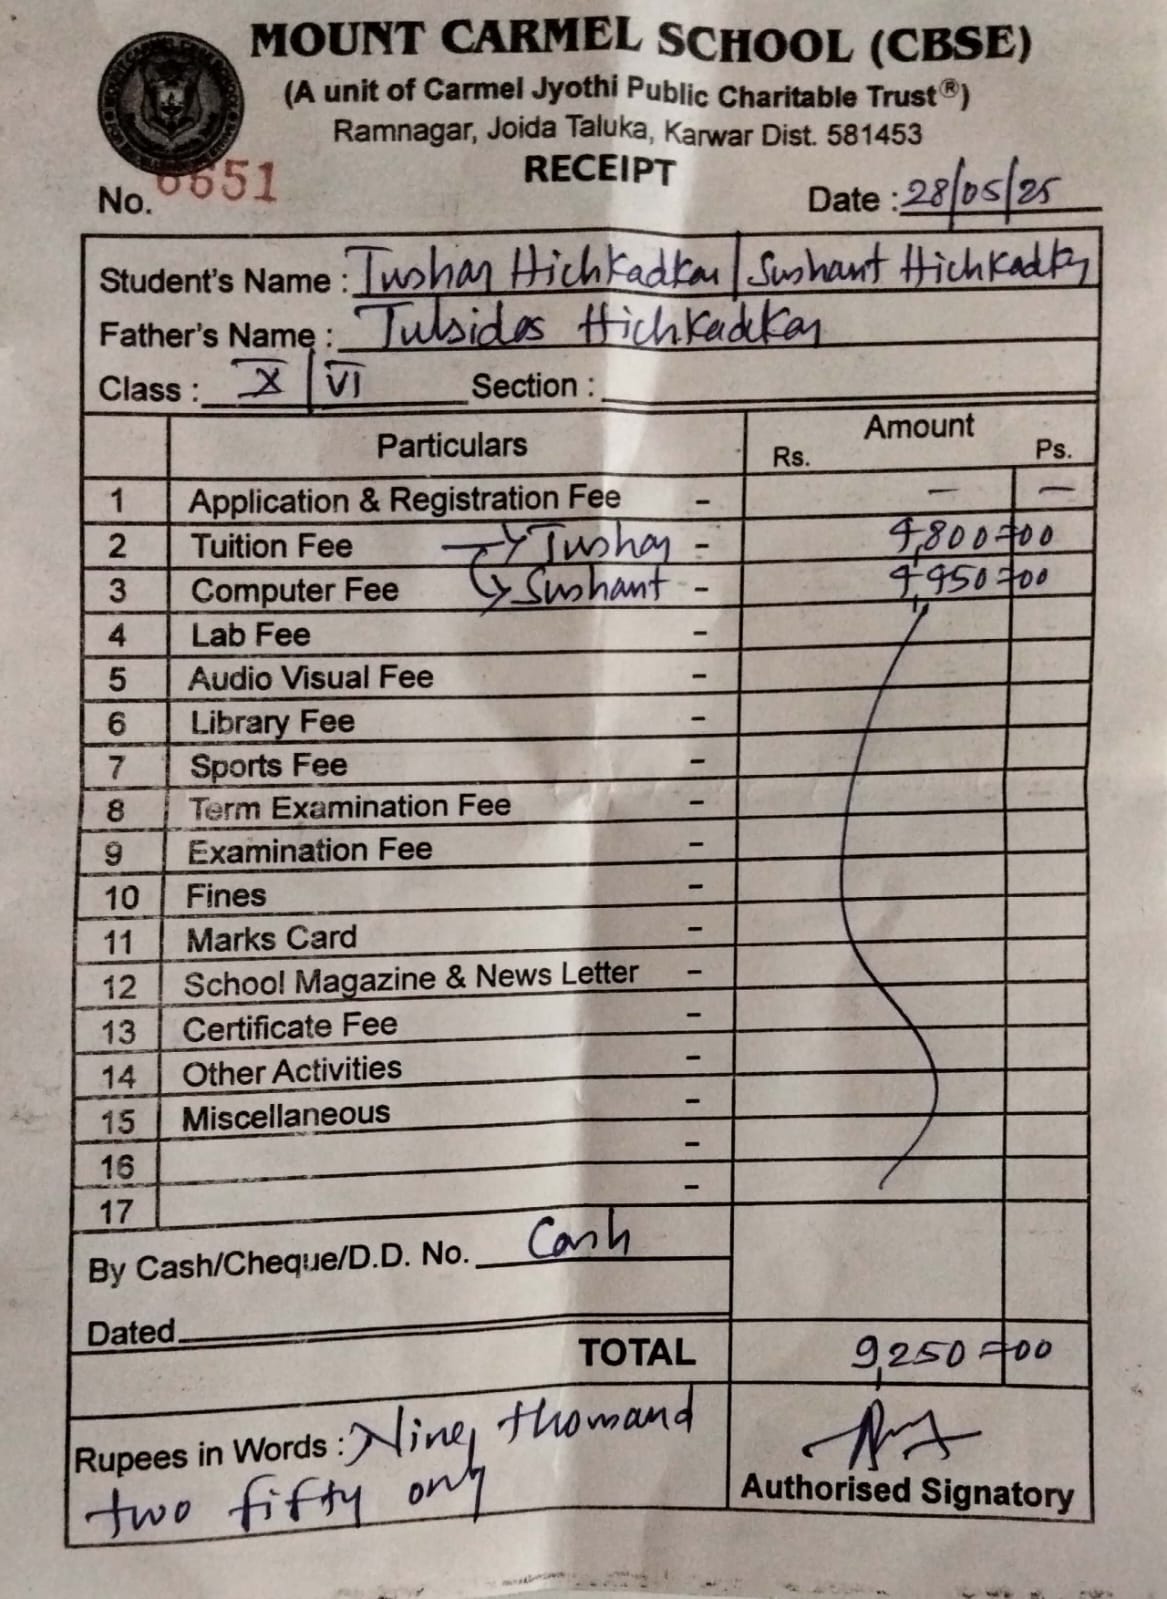 MOUNT CARMEL SCHOOL (CBSE)
(A unit of Carmel Jyothi Public Charitable Trust®)
Ramnagar, Joida Taluka, Karwar Dist. 581453
RECEIPT
No. 6651
Date : 28/05/25
Student's Name : Tushar Hichkadkar / Sushant Hichkadkar
Father's Name : Tulsidas Hichkadkar
Class : X / VI Section :
Particulars Amount
Rs. Ps.
1 Application & Registration Fee - — —
2 Tuition Fee → Tushar - 4,800=00
3 Computer Fee → Sushant - 4,950=00
4 Lab Fee -
5 Audio Visual Fee -
6 Library Fee -
7 Sports Fee -
8 Term Examination Fee -
9 Examination Fee -
10 Fines -
11 Marks Card -
12 School Magazine & News Letter -
13 Certificate Fee -
14 Other Activities -
15 Miscellaneous -
16 -
17 -
By Cash/Cheque/D.D. No. Cash
Dated
TOTAL 9,250=00
Rupees in Words : Nine thousand
two fifty only
Authorised Signatory